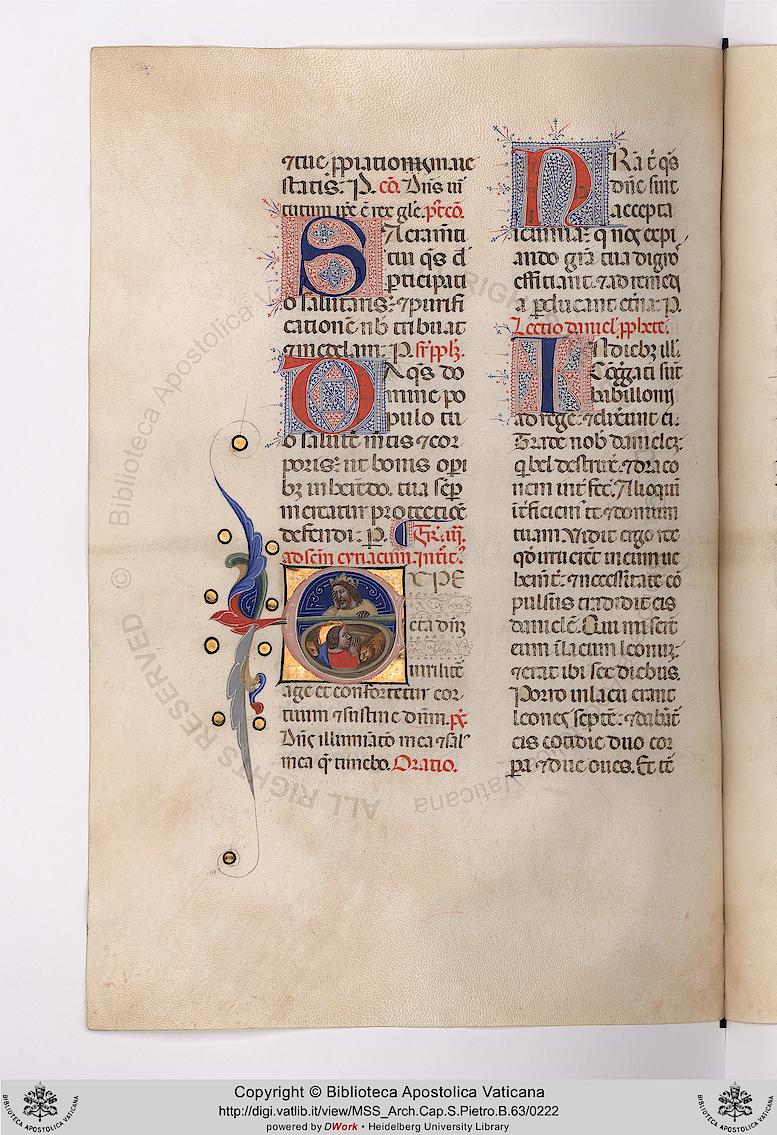 ⁊tue ppiatiōis ⁊maie
statis: P. cō. Dn̄s vi
tutum ip̄e ē rex glē. p̄t cō.
SAcramēti
tui q̄s d̄
ꝑticipati
o salutaris: ⁊purifi
cationē nb̄ tribuat
⁊medelam: P. sr̄ pplꝫ.
DA q̄s do
mine po
pulo tu
o salutē mētis ⁊cor
poris: ut bonis opi
bꝫ inherēdo. tua sēp
mereatur protectiōe
defendi: P. Fr̄. iij.
ad scm̄ cyriacum. Introit.
EXPE
cta dn̄ꝫ
uirilit̄
age et confortetur cor
tuum ⁊sustine dn̄m. ps̄.
Dn̄s illumīatō mea ⁊sal'
mea q̄ timebo. Oratio.
NRā t̄ q̄s
dn̄e sint
accepta
ieiunia: q̄ nos expi
ando grā tua dignos
efficiant: ⁊ad remedi
a ꝑducant et̄na: P.
Lectio daniel. pphete.
IN diebꝫ ill.
Cōggati sūt
babillonij
ad regē ⁊dixerunt ei.
Trade nob̄ danielez:
q̄ bel destruxit ⁊draco
nem int̄fec̄. Alioqui
īt̄ficiem̄ te ⁊domum
tuam. Vidit ergo rex
qd̄ irruer̄et in eum ue
hem̄t̄: ⁊necessitate cō
pulsus tradidit eis
daniele. Qui miser̄t
eum ī lacum leonuꝫ:
⁊erat ibi sex diebus.
Porro in lacu erant
leones septē: ⁊dabāt̄
eis cotidie duo cor
ꝑa ⁊due oues. Et tē
© Biblioteca Apostolica Vaticana
ALL RIGHTS RESERVED
Copyright © Biblioteca Apostolica Vaticana
http://digi.vatlib.it/view/MSS_Arch.Cap.S.Pietro.B.63/0222
powered by DWork • Heidelberg University Library
BIBLIOTECA APOSTOLICA VATICANA
BIBLIOTECA APOSTOLICA VATICANA